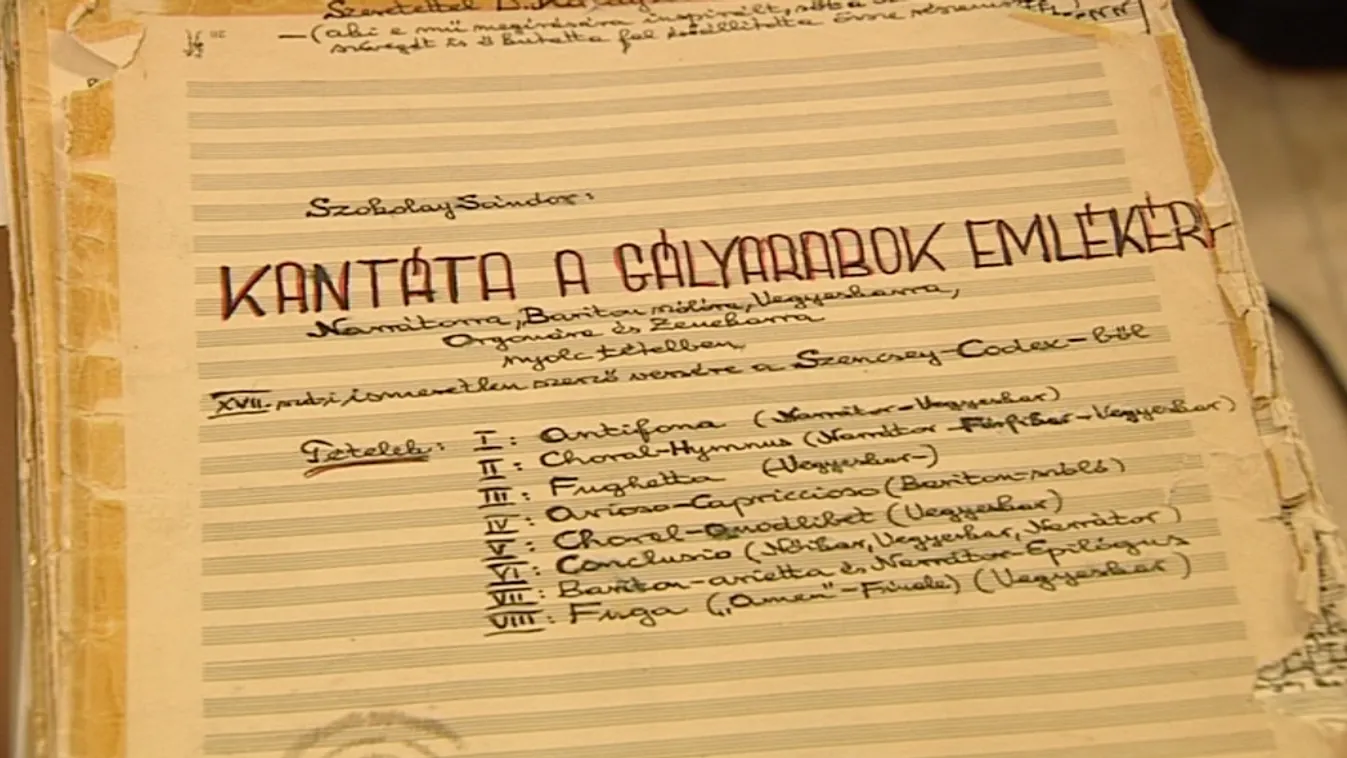 Szeretettel D.
—(aki e mű megírására inspirált, sőt a
szövegét is ő kutatta fel és állította össze részemre
Szokolay Sándor:
KANTÁTA A GÁLYARABOK EMLÉKÉRE
Narrátorra, Bariton szólóra, Vegyeskarra,
Orgonára és Zenekarra
nyolc tételben
XVII. szd-i ismeretlen szerző versére a Szencsey-Codex-ből
Tételek:
I: Antifona (Narrátor-Vegyeskar)
II: Choral-Hymnus (Narrátor-Férfikar-Vegyeskar)
III: Fughetta (-Vegyeskar-)
IV: Arioso-Capriccioso (Bariton-szóló)
V: Choral-Quodlibet (Vegyeskar)
VI: Conclusio (Nőikar, Vegyeskar, Narrátor)
VII: Bariton-arietta és Narrátor-Epilógus
VIII: Fuga („Amen"-Finale) (Vegyeskar)